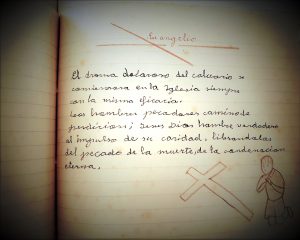 Evangelio
El drama doloroso del calvario se
comiensa en la Iglesia siempre
con la misma eficacia.
Los hombres pecadores camino de
perdicion; Jesus Dios hombre verdadero
al impulso de su caridad, librandolas
del pecado de la muerte, de la condenacion
eterna,